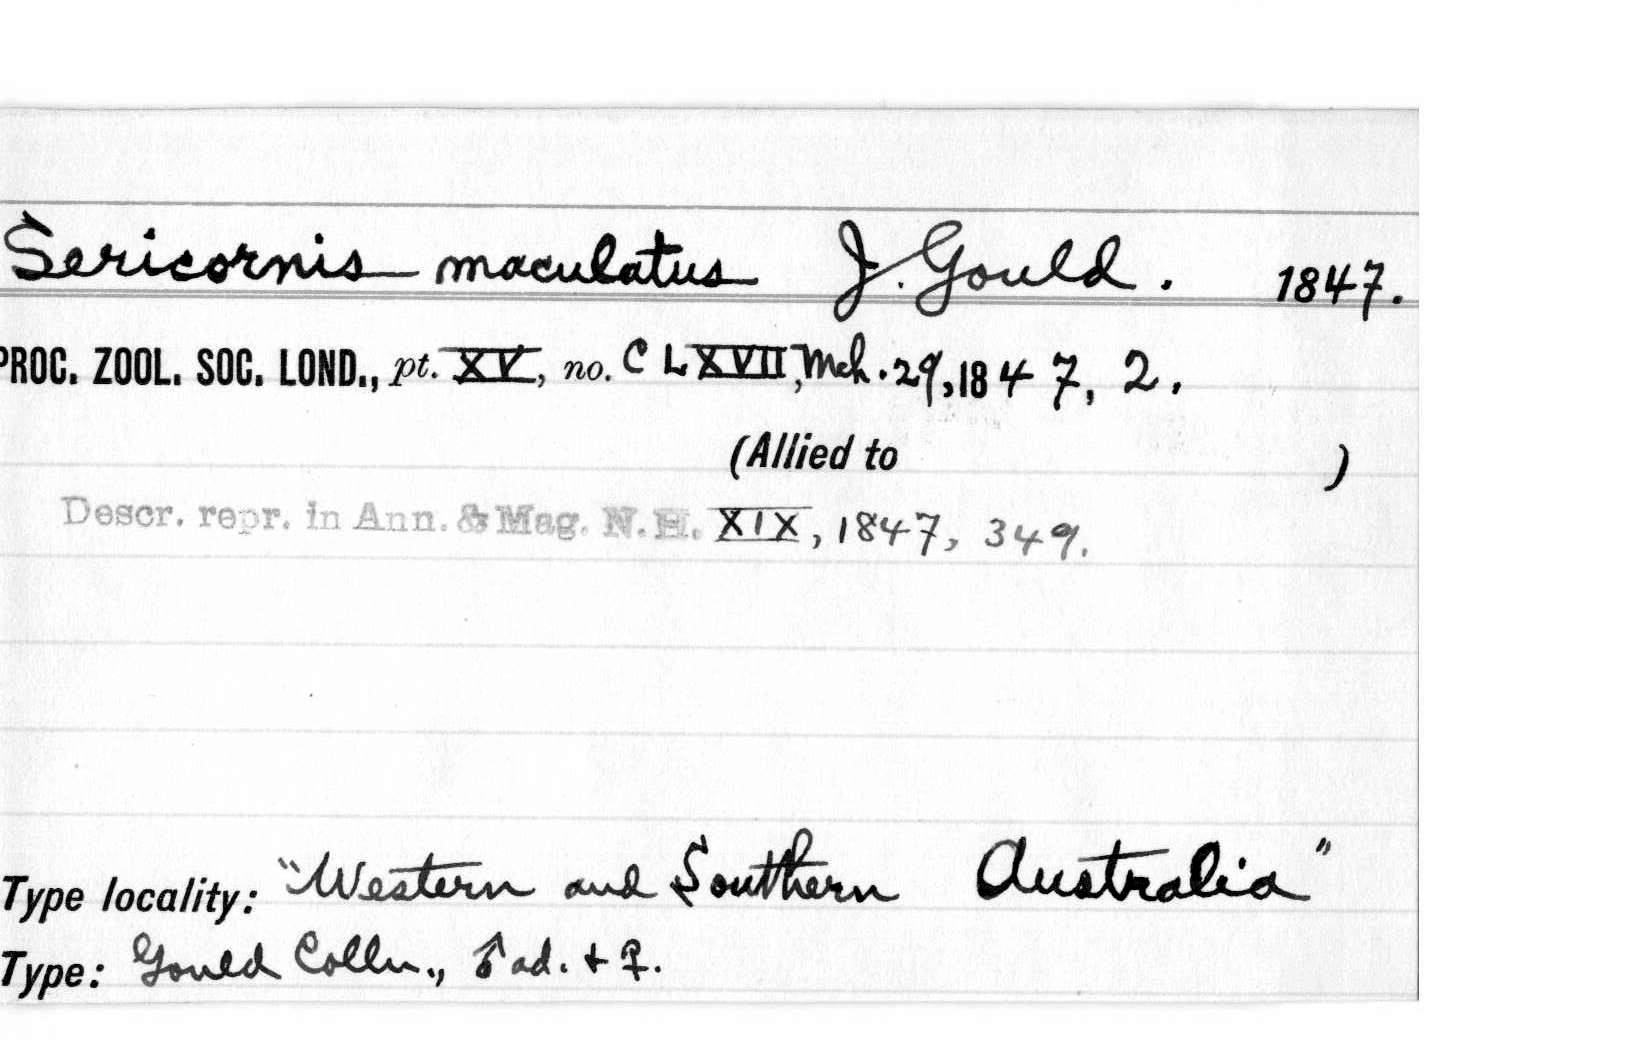 Sericornis maculatus J. Gould. 1847.
PROC. ZOOL. SOC. LOND., pt. XV, no. CLXVII, Mch. 29, 1847, 2.
(Allied to )
Descr. repr. in Ann. & Mag. N.H. XIX, 1847, 349.
Type locality: "Western and Southern Australia"
Type: Gould Colln., ♂ ad. + ♀.